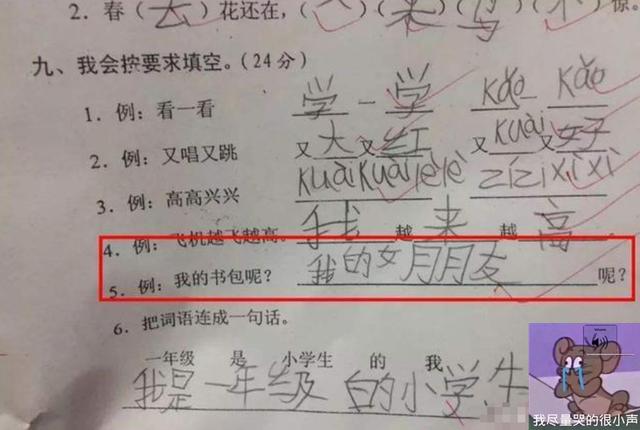 2. 春(去)花还在,( )( 来 )( 鸟 )( 不 )惊。
九、我会按要求填空。(24分)
1. 例: 看一看 学一学 kǎo kǎo
2. 例: 又唱又跳 又大又红 又kuài又好
3. 例: 高高兴兴 kuàikuàilèlè zǐzǐxìxì
4. 例: 飞机越飞越高。 我越来越高
5. 例: 我的书包呢? 我的女朋友呢?
6. 把词语连成一句话。
一年级 是 小学生 的 我
我是一年级的小学生
我尽量哭的很小声